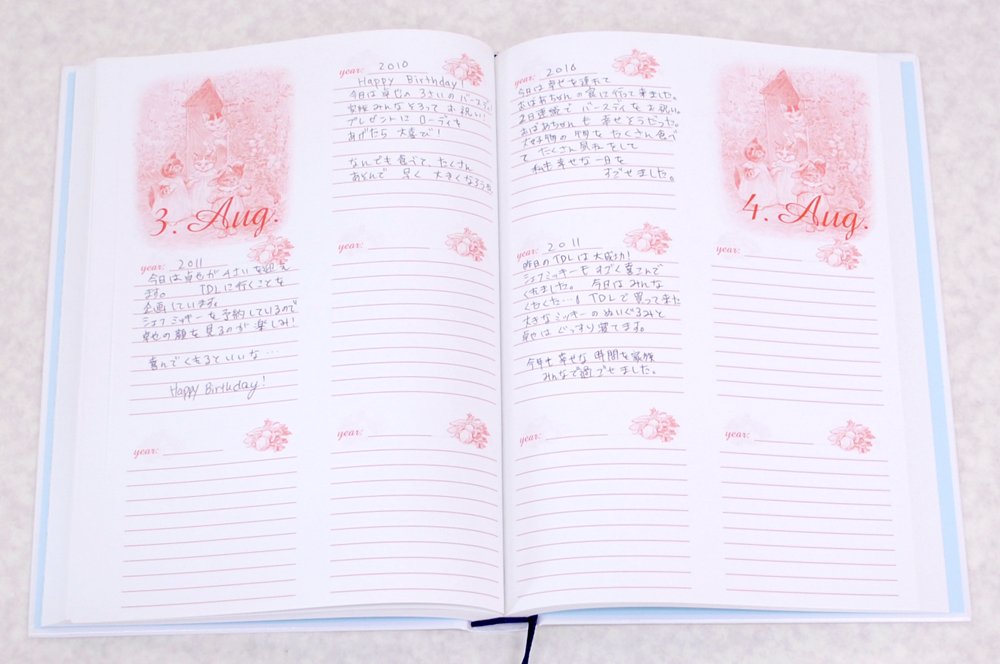 3. Aug.
year: 2010
Happy Birthday!
今日は卓也の3さいのバースディ!
家族みんなそろってお祝い!
プレゼントにローディを
あげたら大喜び!
なんでも食べて、たくさん
あそんで 早く 大きくなろうね
year: 2011
今日は卓也が4さいを迎え
ます。 TDLに行くことを
企画しています。
シェフミッキーを予約しているので
卓也の顔を見るのが楽しみ!
喜んでくれるといいな…
Happy Birthday!
year:
year:
year:
year: 2010
今日は幸せを連れて
おばあちゃんの家に行って来ました。
2日連続でバースディをお祝い。
おばあちゃんも幸せそうだった。
大好物の物をたくさん食べ
てたくさん昼ねをして
私も幸せな一日を
すごせました。
4. Aug.
year: 2011
昨日のTDLは大成功!
シェフミッキーをすごく喜こんで
くれました。 今日はみんな
くたくた…! TDLで買って来た
大きなミッキーのぬいぐるみと
卓也はぐっすり寝てます。
今年も幸せな時間を家族
みんなで過ごせました。
year:
year:
year: